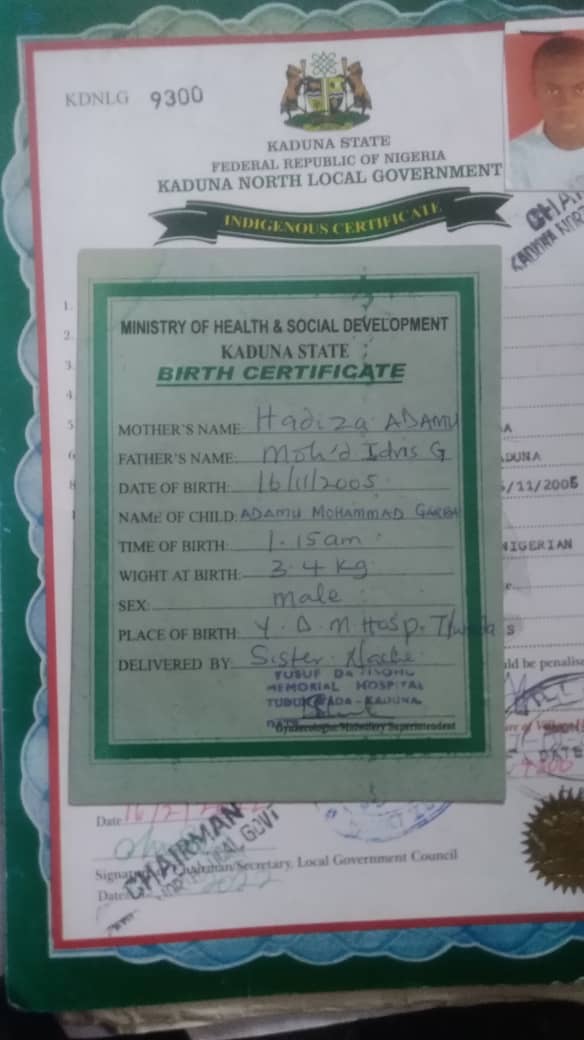 KDNLG 9300
KADUNA STATE
FEDERAL REPUBLIC OF NIGERIA
KADUNA NORTH LOCAL GOVERNMENT
INDIGENOUS CERTIFICATE
1.
2.
3.
4.
5
6
8
MINISTRY OF HEALTH & SOCIAL DEVELOPMENT
KADUNA STATE
BIRTH CERTIFICATE
MOTHER'S NAME: Hadiza ADAMU
FATHER'S NAME: Moh'd Idris G
DATE OF BIRTH: 16/11/2005
NAME OF CHILD: ADAMU MOHAMMAD GARBA
TIME OF BIRTH: 1.15am
WIGHT AT BIRTH: 3.4 kg
SEX: male
PLACE OF BIRTH: Y. D. M Hosp.
DELIVERED BY: Sister
YUSUF
MEMORIAL HOSPITAL
TUDUN WADA - KADUNA
DATE
Gynaecologist Midwifery Superintendent
A
DUNA
/11/2005
NIGERIAN
S
ld be penalise
DATE
Date 16/2/2022
CHAIRMAN
Chairman/Secretary, Local Government Council
Date 2022